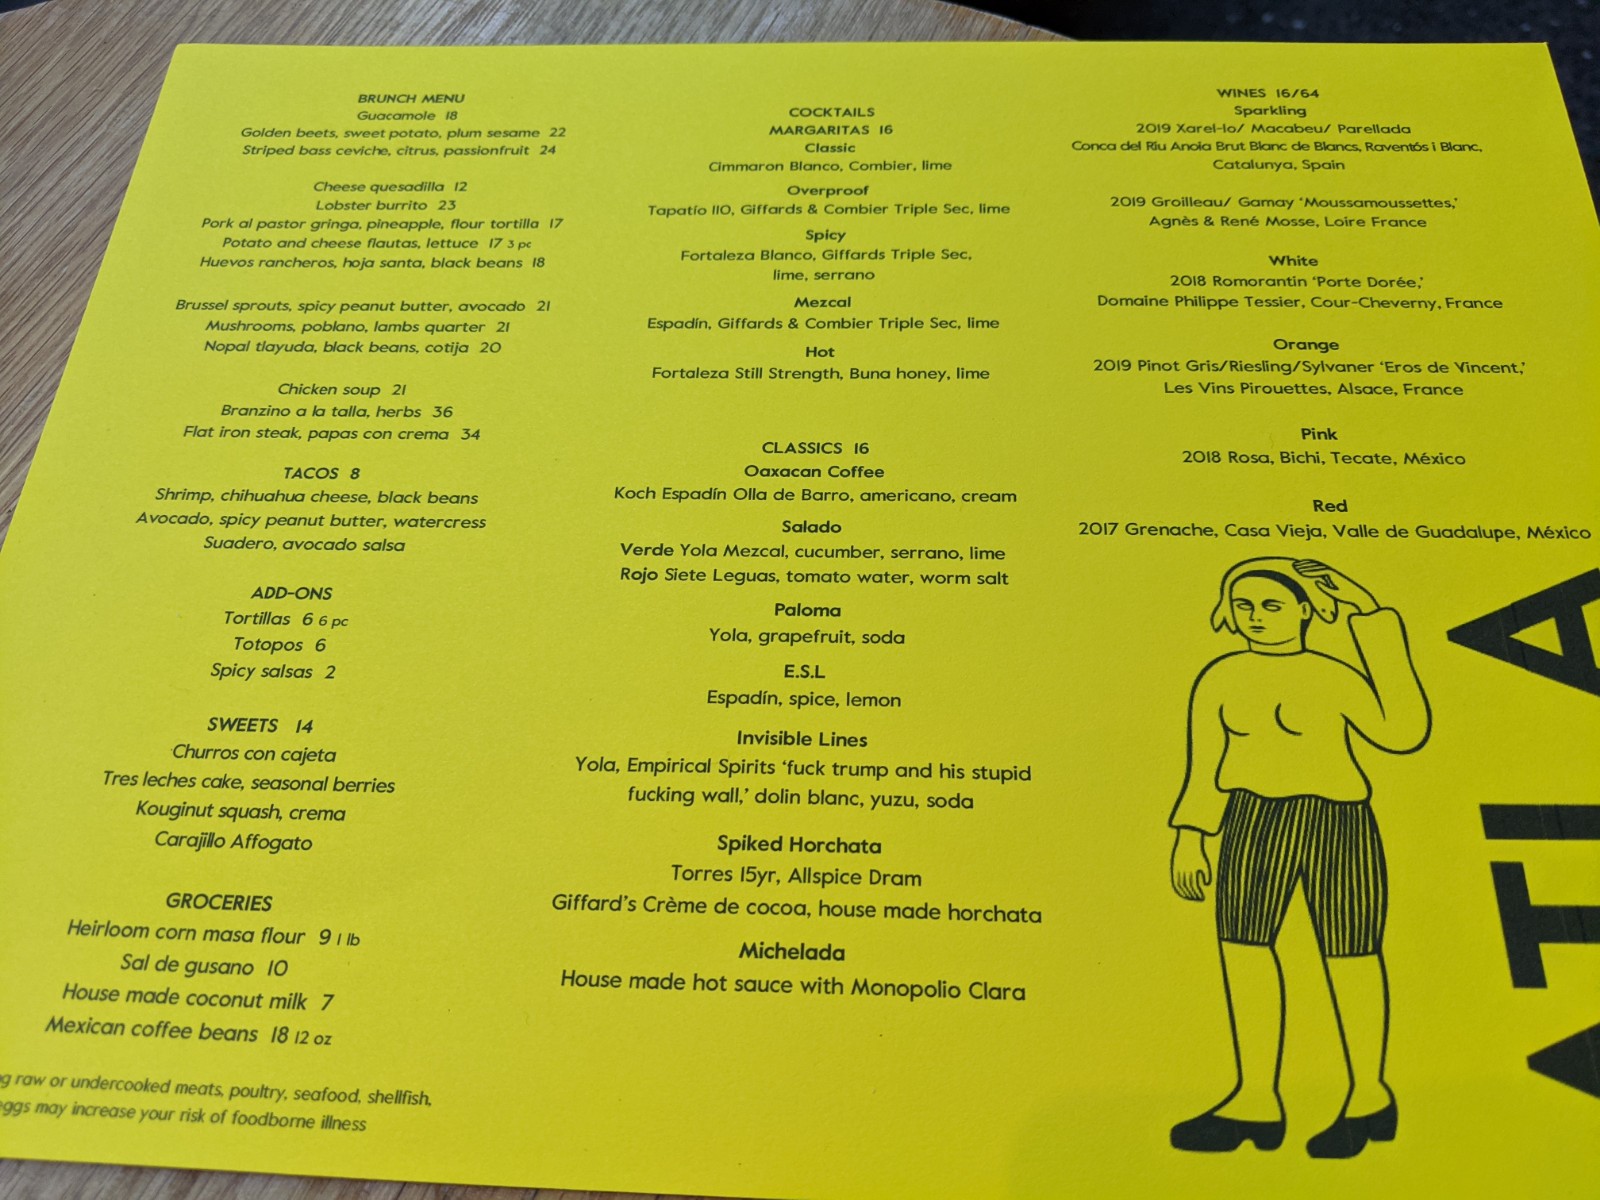 BRUNCH MENU
Guacamole 18
Golden beets, sweet potato, plum sesame 22
Striped bass ceviche, citrus, passionfruit 24
Cheese quesadilla 12
Lobster burrito 23
Pork al pastor gringa, pineapple, flour tortilla 17
Potato and cheese flautas, lettuce 17 3 pc
Huevos rancheros, hoja santa, black beans 18
Brussel sprouts, spicy peanut butter, avocado 21
Mushrooms, poblano, lambs quarter 21
Nopal tlayuda, black beans, cotija 20
Chicken soup 21
Branzino a la talla, herbs 36
Flat iron steak, papas con crema 34
TACOS 8
Shrimp, chihuahua cheese, black beans
Avocado, spicy peanut butter, watercress
Suadero, avocado salsa
ADD-ONS
Tortillas 6 6 pc
Totopos 6
Spicy salsas 2
SWEETS 14
Churros con cajeta
Tres leches cake, seasonal berries
Kouginut squash, crema
Carajillo Affogato
GROCERIES
Heirloom corn masa flour 9 1 lb
Sal de gusano 10
House made coconut milk 7
Mexican coffee beans 18 12 oz
raw or undercooked meats, poultry, seafood, shellfish,
eggs may increase your risk of foodborne illness
COCKTAILS
MARGARITAS 16
Classic
Cimmaron Blanco, Combier, lime
Overproof
Tapatío 110, Giffards & Combier Triple Sec, lime
Spicy
Fortaleza Blanco, Giffards Triple Sec,
lime, serrano
Mezcal
Espadín, Giffards & Combier Triple Sec, lime
Hot
Fortaleza Still Strength, Buna honey, lime
CLASSICS 16
Oaxacan Coffee
Koch Espadín Olla de Barro, americano, cream
Salado
Verde Yola Mezcal, cucumber, serrano, lime
Rojo Siete Leguas, tomato water, worm salt
Paloma
Yola, grapefruit, soda
E.S.L
Espadín, spice, lemon
Invisible Lines
Yola, Empirical Spirits ‘fuck trump and his stupid
fucking wall,’ dolin blanc, yuzu, soda
Spiked Horchata
Torres 15yr, Allspice Dram
Giffard’s Crème de cocoa, house made horchata
Michelada
House made hot sauce with Monopolio Clara
WINES 16/64
Sparkling
2019 Xarel-lo/ Macabeu/ Parellada
Conca del Riu Anoia Brut Blanc de Blancs, Raventós i Blanc,
Catalunya, Spain
2019 Groilleau/ Gamay ‘Moussamoussettes,’
Agnès & René Mosse, Loire France
White
2018 Romorantin ‘Porte Dorée,’
Domaine Philippe Tessier, Cour-Cheverny, France
Orange
2019 Pinot Gris/Riesling/Sylvaner ‘Eros de Vincent,’
Les Vins Pirouettes, Alsace, France
Pink
2018 Rosa, Bichi, Tecate, México
Red
2017 Grenache, Casa Vieja, Valle de Guadalupe, México